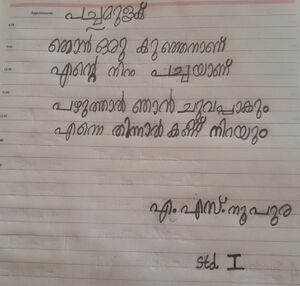 പച്ചമുളക്
ഞാൻ ഒരു കുഞ്ഞനാണ്
എൻ്റെ നിറം പച്ചയാണ്
പഴുത്താൽ ഞാൻ ചുവപ്പാകും
എന്നെ തിന്നാൽ കണ്ണ് നിറയും
എം.എസ്.നൂപുര
std I